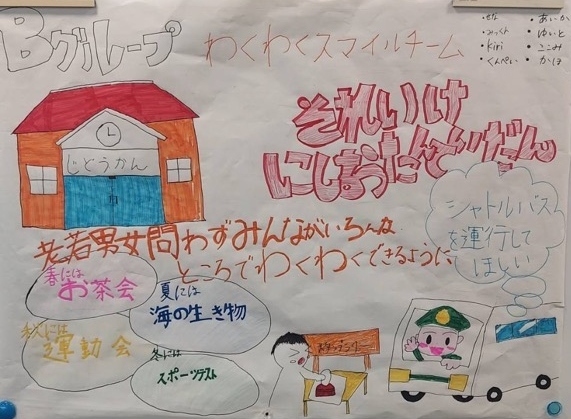 Bグループ
わくわくスマイルチーム
・せな
・みっくん
・kiri
・くんぺい
・あいか
・ゆいと
・ここみ
・かほ
それいいけ
にしまったんていだん
じどうかん
シャトルバス
を運行して
ほしい
老若男女問わずみんながいろんな
ところでわくわくできるように
春には
お茶会
夏には
海の生き物
秋には
運動会
冬には
スポーツテスト